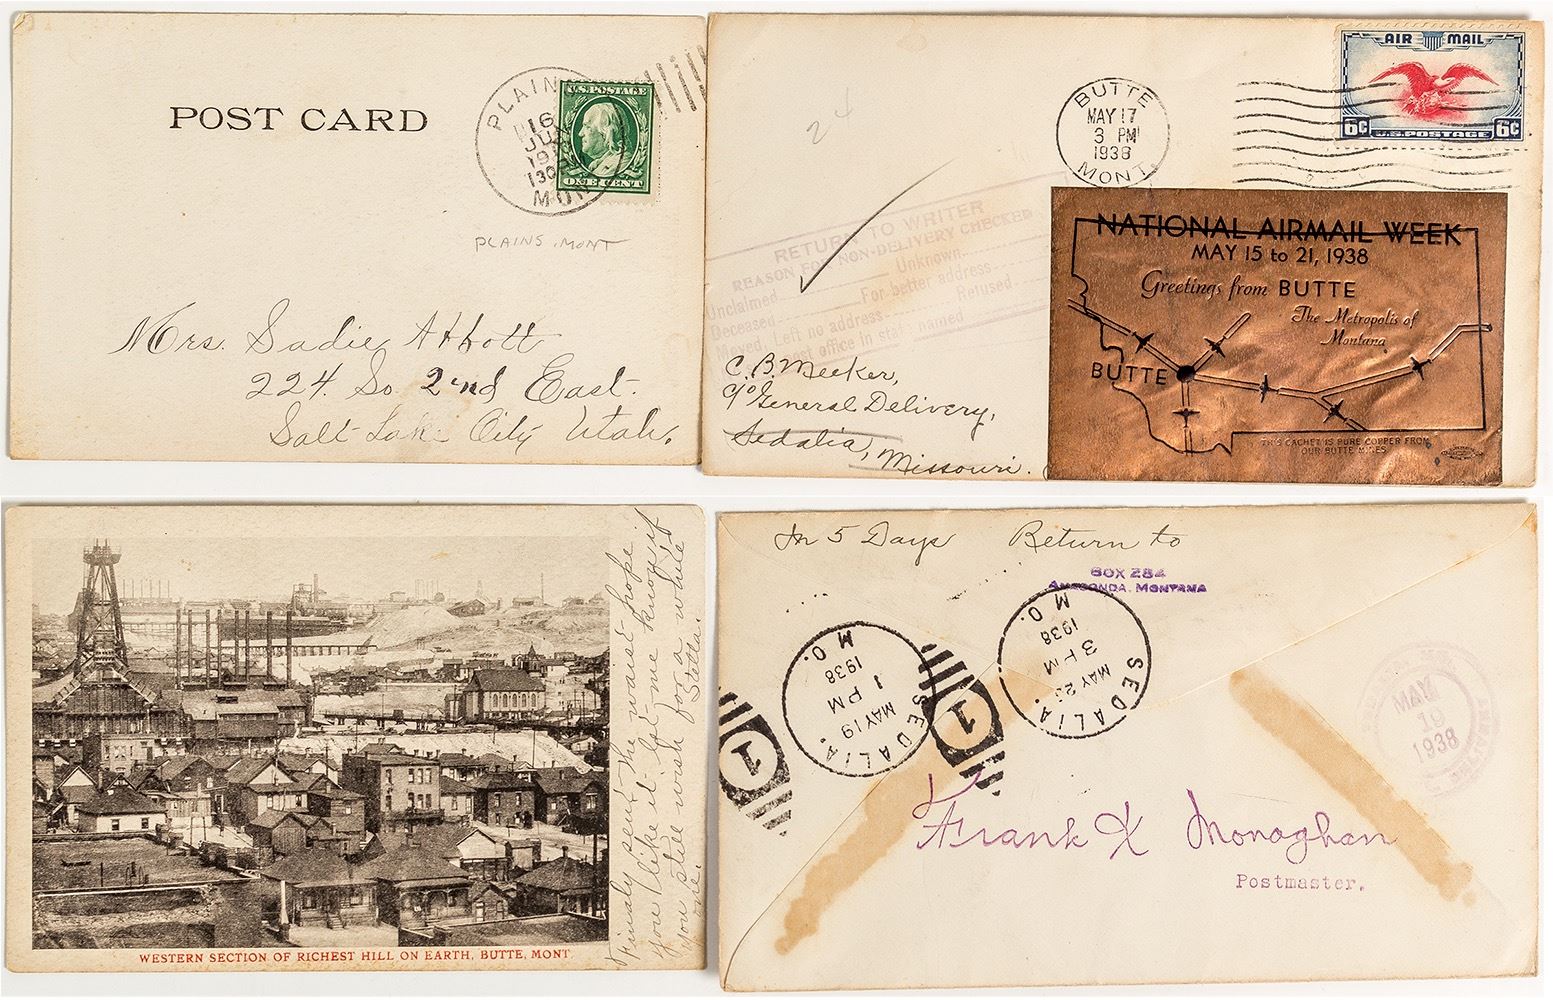 POST CARD
PLAINS
16
JUN
U.S. POSTAGE
ONE CENT
PLAINS, MONT
Mrs. Sadie Abbott
224. So. 2nd East.
Salt Lake City Utah.
24
BUTTE
MAY 17
3 PM
1938
MONT.
AIR MAIL
6¢ U.S. POSTAGE 6¢
RETURN TO WRITER
REASON FOR NON-DELIVERY CHECKED
Unclaimed Unknown
Deceased For better address
Moved, Left no address Refused
post office in state named
C. B. Meeker,
c/o General Delivery,
Sedalia,
Missouri.
NATIONAL AIRMAIL WEEK
MAY 15 to 21, 1938
Greetings from BUTTE
The Metropolis of
Montana
BUTTE
THIS CACHET IS PURE COPPER FROM
OUR BUTTE MINES
Finaly sent the waist hope
you like it let me know if
you still wish for a while
one. Stella.
WESTERN SECTION OF RICHEST HILL ON EARTH, BUTTE, MONT.
In 5 Days Return to
BOX 284
ANACONDA, MONTANA
SEDALIA.
MAY 19
1 PM
1938
MO.
1
SEDALIA.
MAY 23
3 PM
1938
MO.
1
MAY
19
1938
Frank X Monaghan
Postmaster.